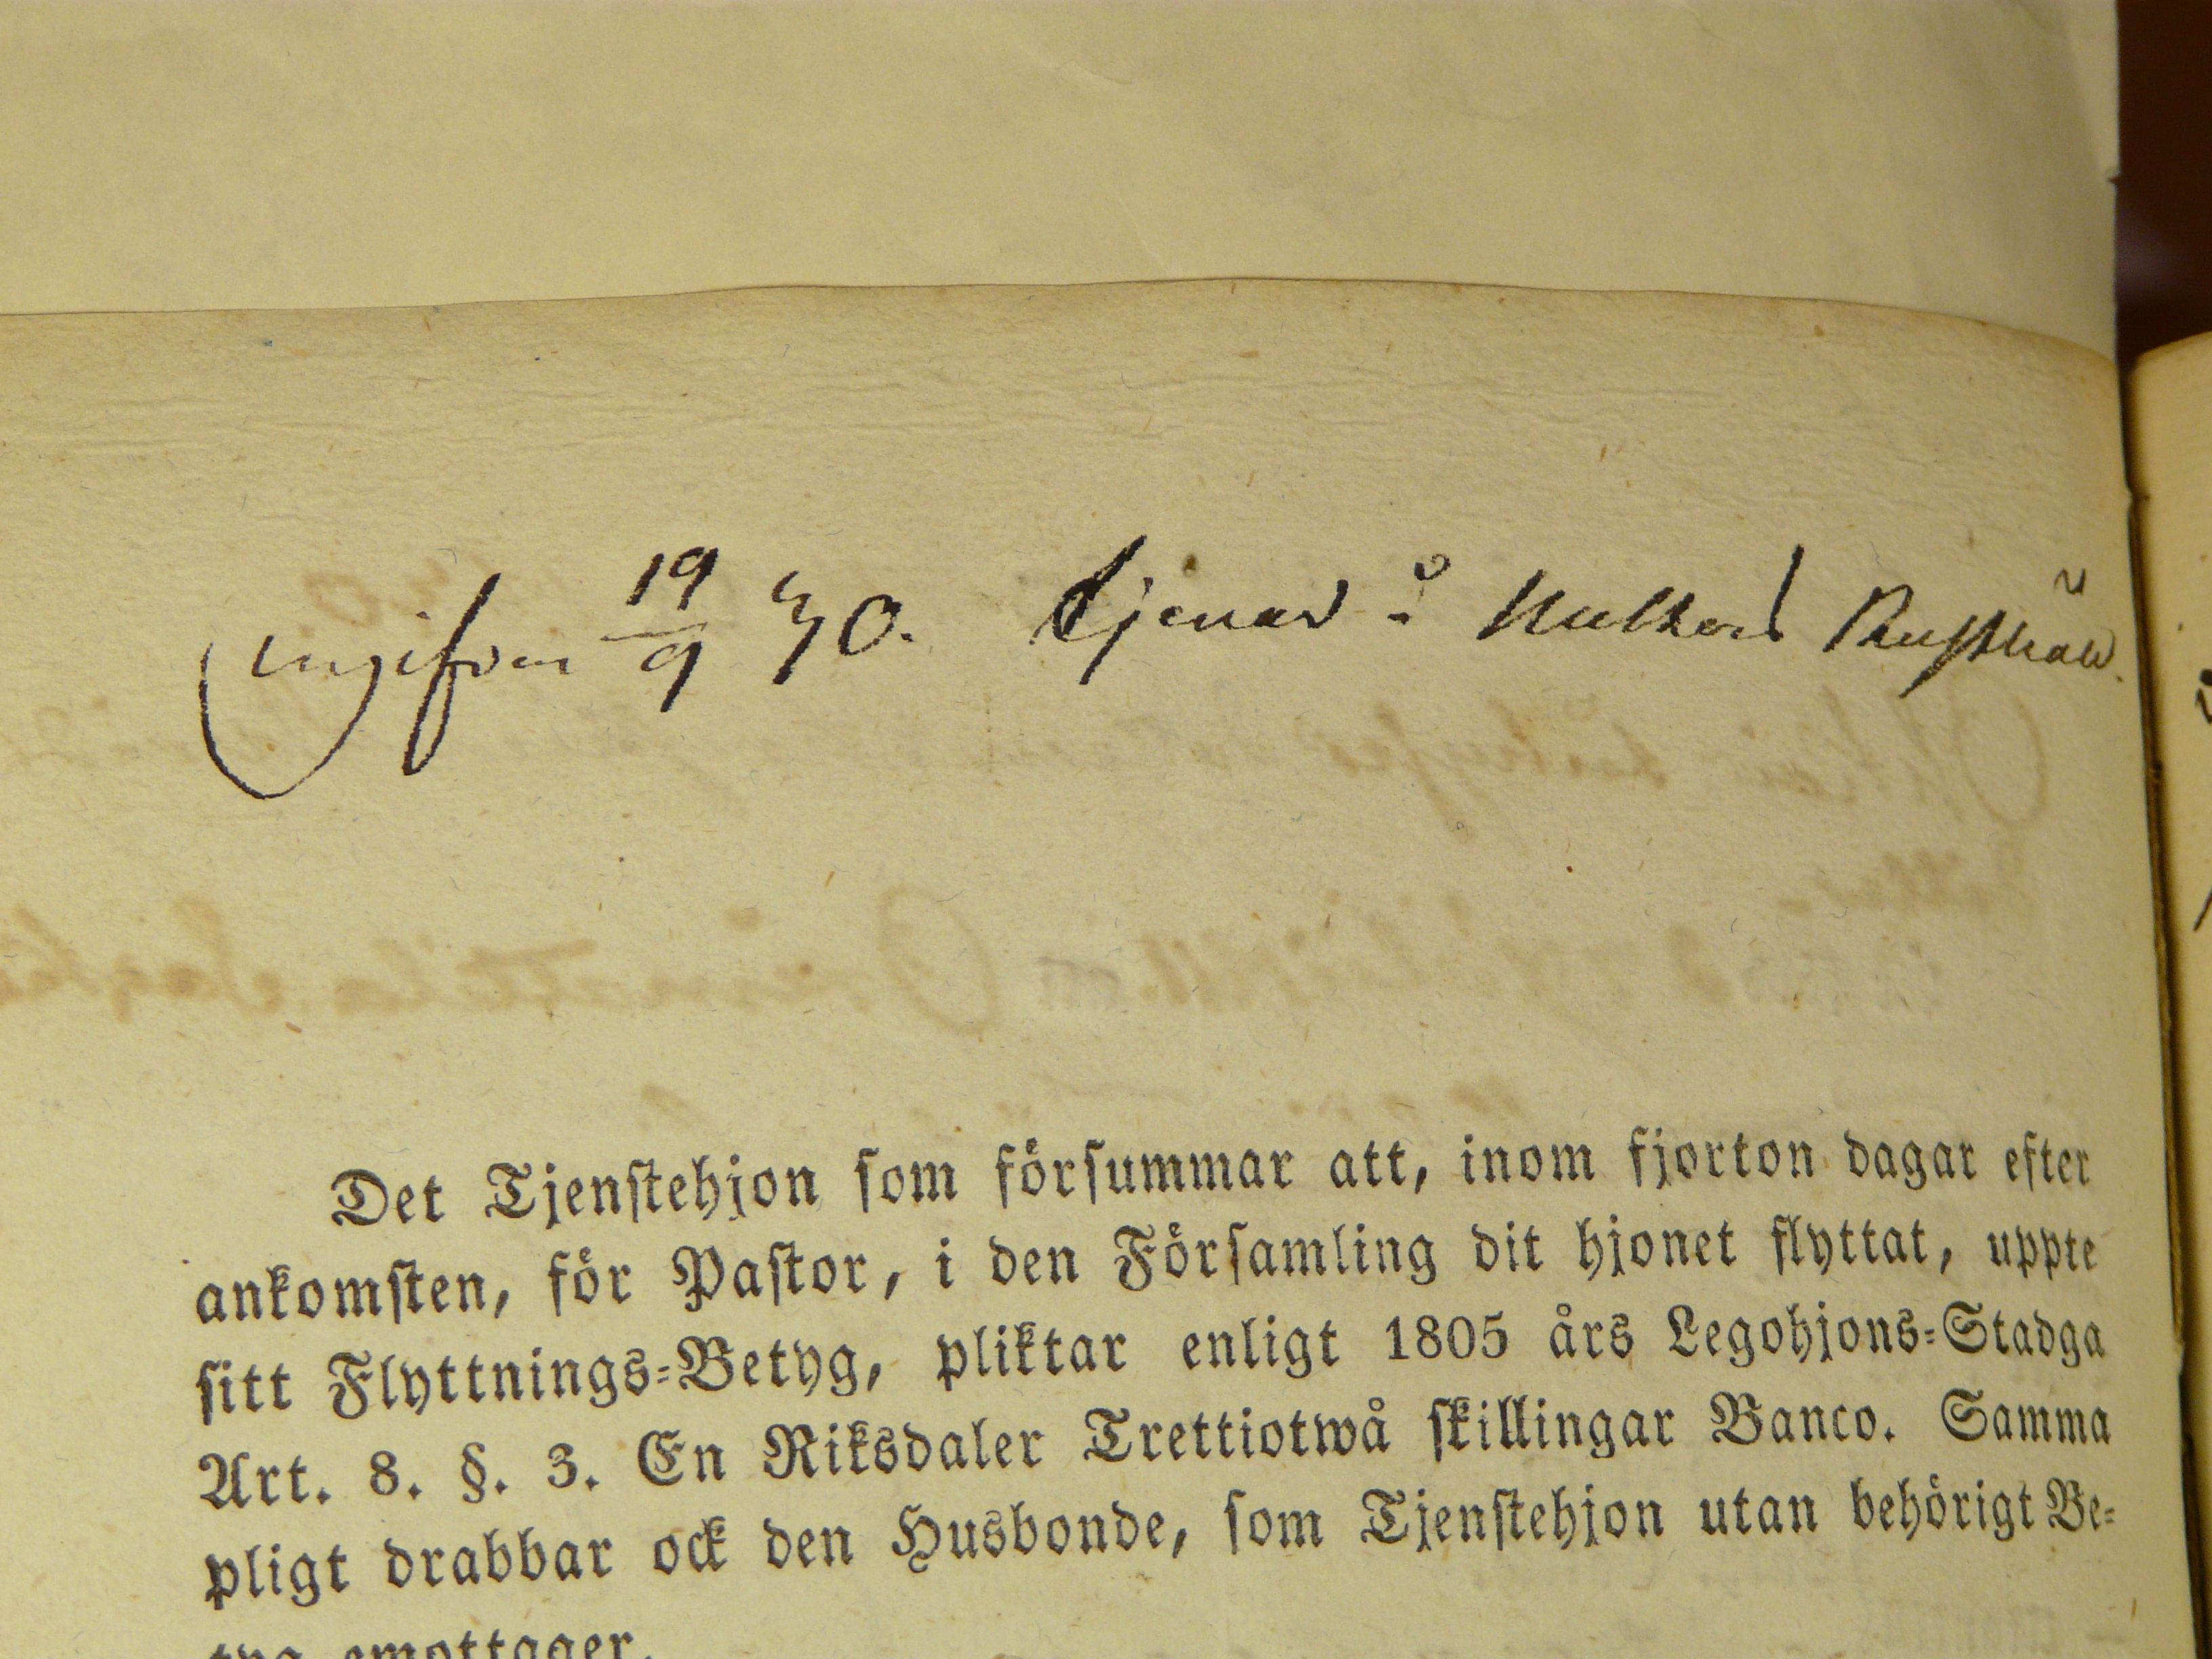 ingifven 19/9 40. tjenar å
Det Tjenstehjon som försummar att, inom fjorton dagar efter
ankomsten, för Pastor, i den Församling dit hjonet flyttat, uppte
sitt Flyttnings-Betyg, pliktar enligt 1805 års Legohjons-Stadga
Art. 8. §. 3. En Riksdaler Trettiotwå skillingar Banco. Samma
pligt drabbar ock den Husbonde, som Tjenstehjon utan behörigt Be-
tyg emottager.